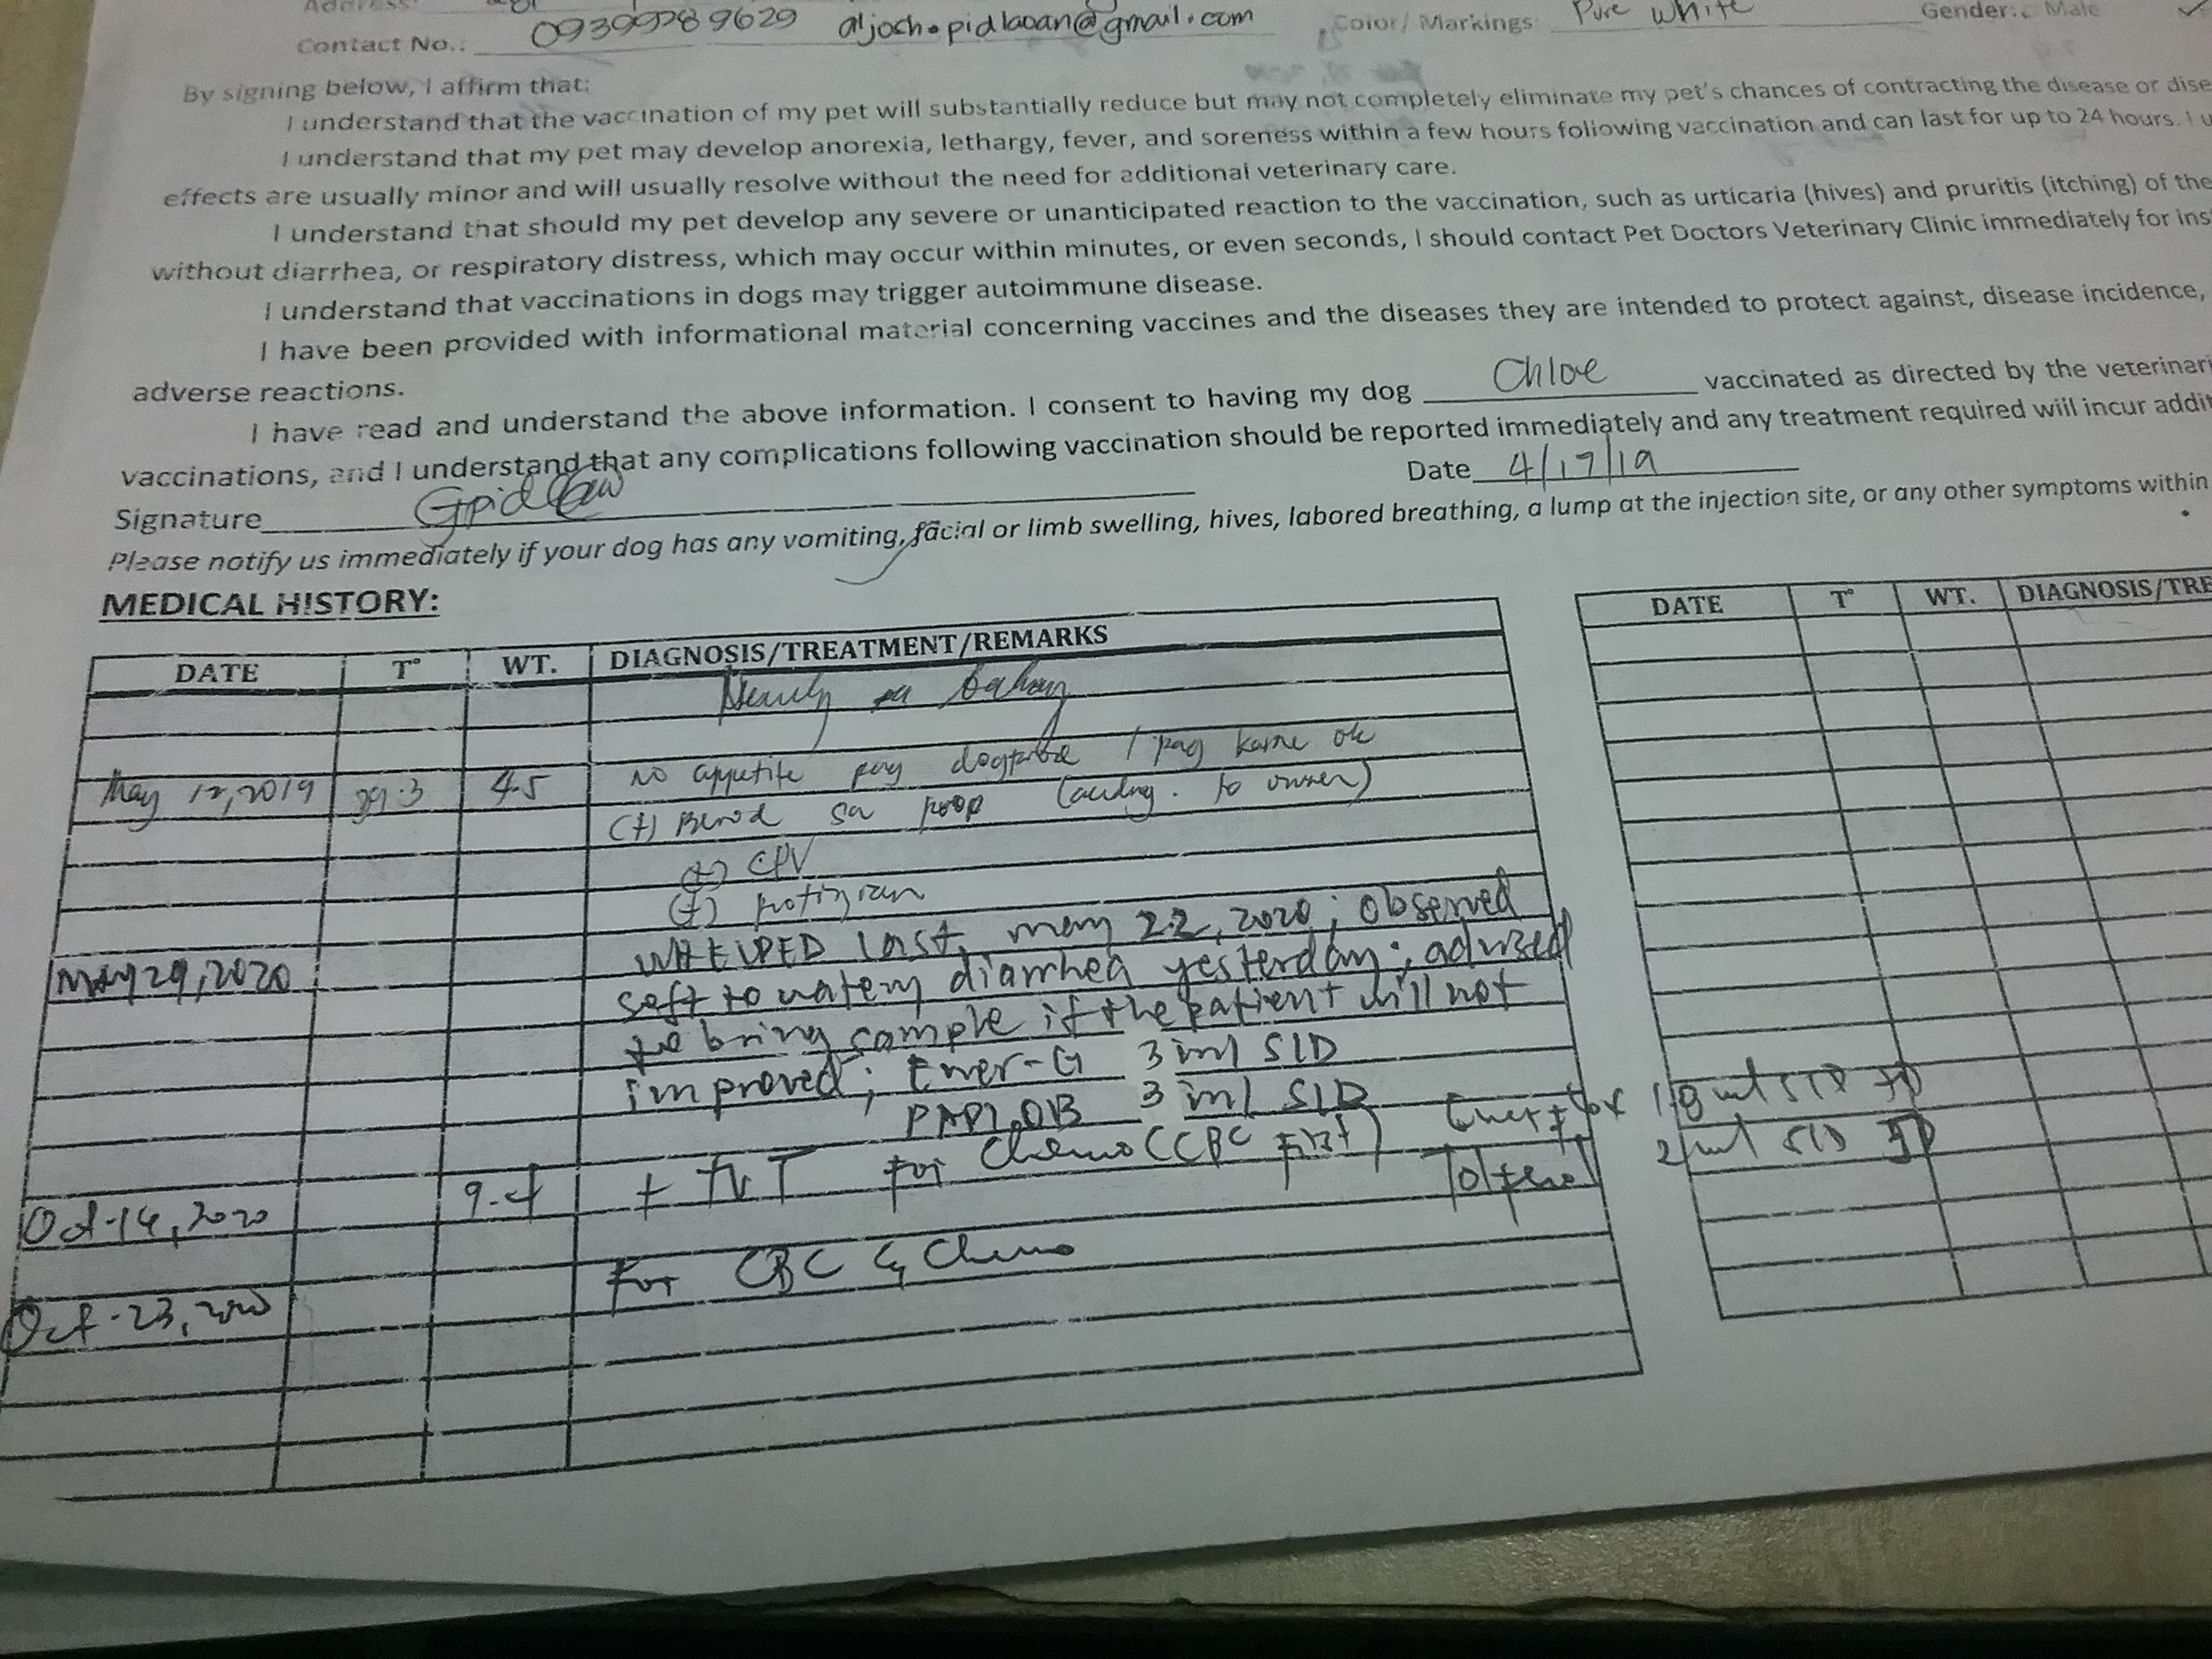 Address:
Contact No.: 09399789629 aljosh.pidlaoan@gmail.com Color/ Markings Pure White Gender: Male
By signing below, I affirm that:
I understand that the vaccination of my pet will substantially reduce but may not completely eliminate my pet's chances of contracting the disease or dise
I understand that my pet may develop anorexia, lethargy, fever, and soreness within a few hours following vaccination and can last for up to 24 hours. I u
effects are usually minor and will usually resolve without the need for additional veterinary care.
I understand that should my pet develop any severe or unanticipated reaction to the vaccination, such as urticaria (hives) and pruritis (itching) of the
without diarrhea, or respiratory distress, which may occur within minutes, or even seconds, I should contact Pet Doctors Veterinary Clinic immediately for ins
I understand that vaccinations in dogs may trigger autoimmune disease.
I have been provided with informational material concerning vaccines and the diseases they are intended to protect against, disease incidence,
adverse reactions.
I have read and understand the above information. I consent to having my dog Chloe vaccinated as directed by the veterinari
vaccinations, and I understand that any complications following vaccination should be reported immediately and any treatment required will incur addit
Signature Date 4/17/19
Please notify us immediately if your dog has any vomiting, facial or limb swelling, hives, labored breathing, a lump at the injection site, or any other symptoms within
MEDICAL HISTORY:
DATE T° WT. DIAGNOSIS/TREATMENT/REMARKS
DATE T° WT. DIAGNOSIS/TRE
sa bahay
May 12, 2019 39.3 4.5 No appetite pag / pag karne ok
(+) sa poop to owner)
(+) CPV
(+)
May 29, 2020 WHELPED last may 22, 2020; observed
soft to watery diarrhea yesterday; advised
to bring sample if the patient will not
improved; Ener-G 3 ml SID
PAPI OB 3 ml SID
Oct-14, 2020 9.4 + TVT for Chemo (CBC first)
1.8 ml SID 7D
2 ml SID
Oct-23, 2020 For CBC & Chemo